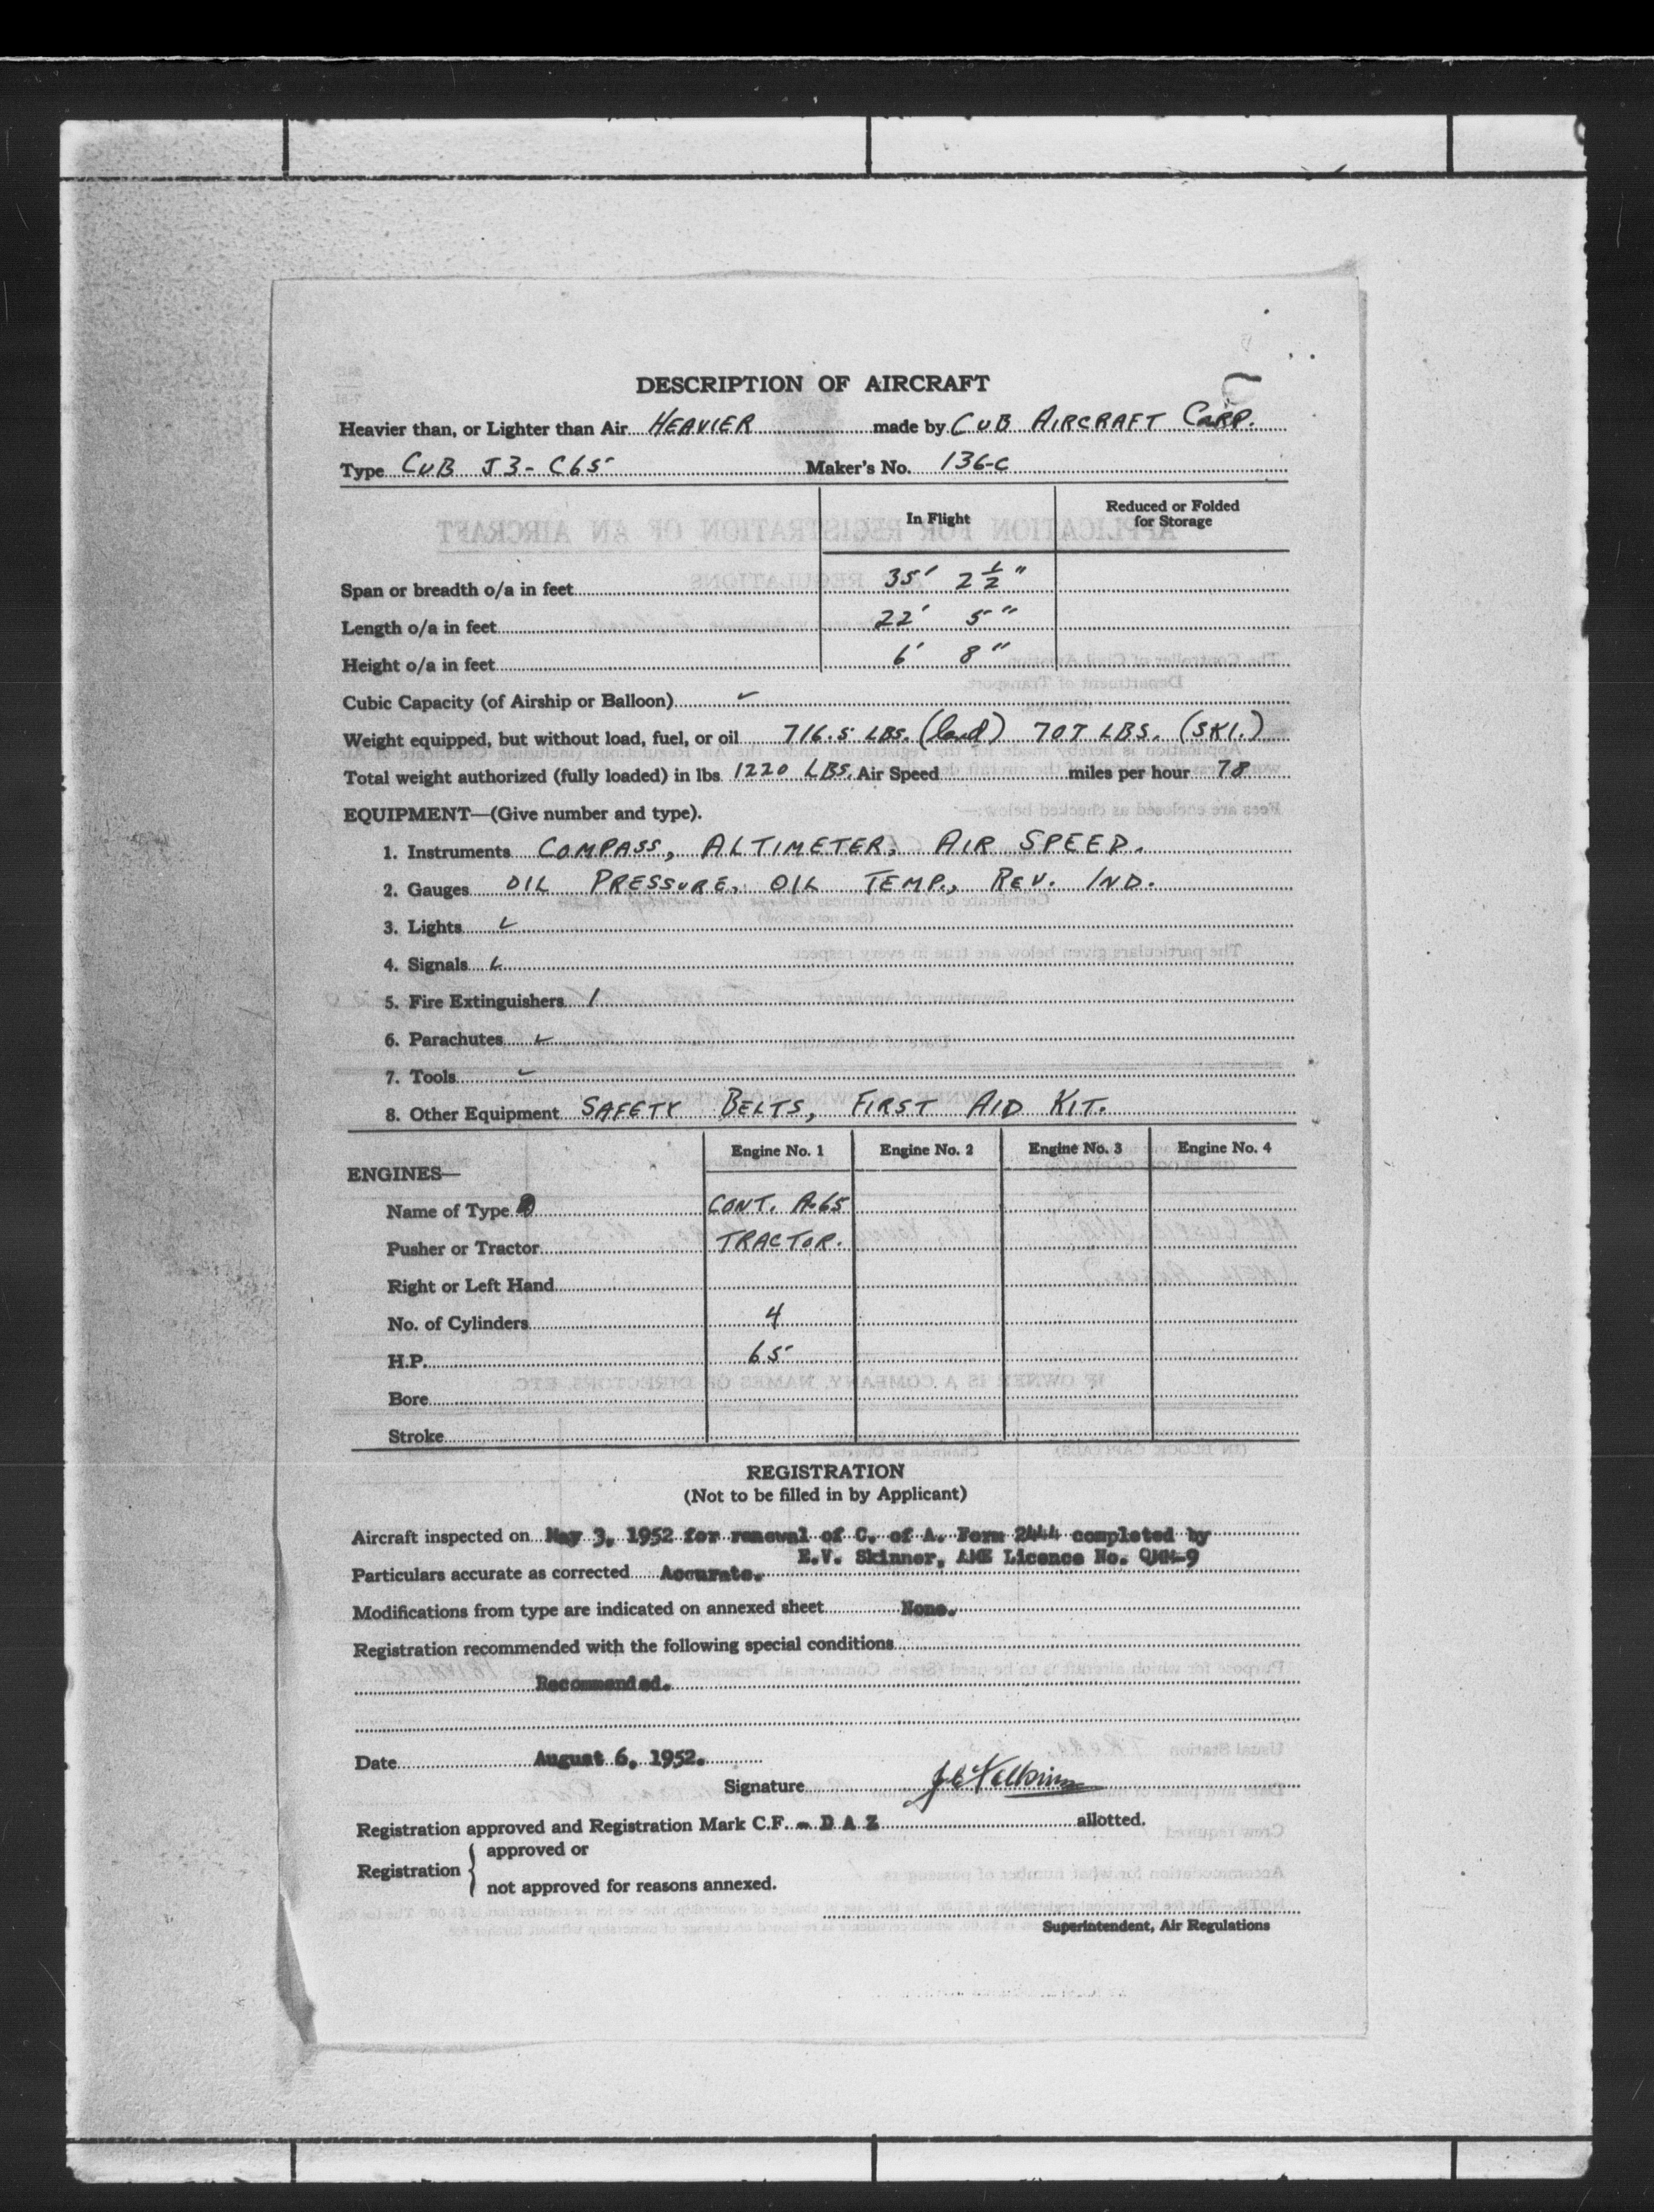 DESCRIPTION OF AIRCRAFT
Heavier than, or Lighter than Air HEAVIER made by CUB AIRCRAFT CORP.
Type CUB J3-C65 Maker's No. 136-C
In Flight Reduced or Folded for Storage
Span or breadth o/a in feet 35' 2½"
Length o/a in feet 22' 5"
Height o/a in feet 6' 8"
Cubic Capacity (of Airship or Balloon)
Weight equipped, but without load, fuel, or oil 716.5 LBS. (land) 707 LBS. (SKI.)
Total weight authorized (fully loaded) in lbs 1220 LBS. Air Speed miles per hour 78
EQUIPMENT—(Give number and type).
1. Instruments COMPASS, ALTIMETER, AIR SPEED.
2. Gauges OIL PRESSURE, OIL TEMP., REV. IND.
3. Lights
4. Signals
5. Fire Extinguishers 1
6. Parachutes
7. Tools
8. Other Equipment SAFETY BELTS, FIRST AID KIT.
Engine No. 1 Engine No. 2 Engine No. 3 Engine No. 4
ENGINES—
Name of Type CONT. A-65
Pusher or Tractor TRACTOR.
Right or Left Hand
No. of Cylinders 4
H.P. 65
Bore
Stroke
REGISTRATION
(Not to be filled in by Applicant)
Aircraft inspected on May 3, 1952 for renewal of C. of A. Form 2444 completed by
E.V. Skinner, AME Licence No. QMM-9
Particulars accurate as corrected Accurate.
Modifications from type are indicated on annexed sheet None.
Registration recommended with the following special conditions
Recommended.
Date August 6, 1952.
Signature
Registration approved and Registration Mark C.F. - D A Z allotted.
Registration { approved or
not approved for reasons annexed.
Superintendent, Air Regulations